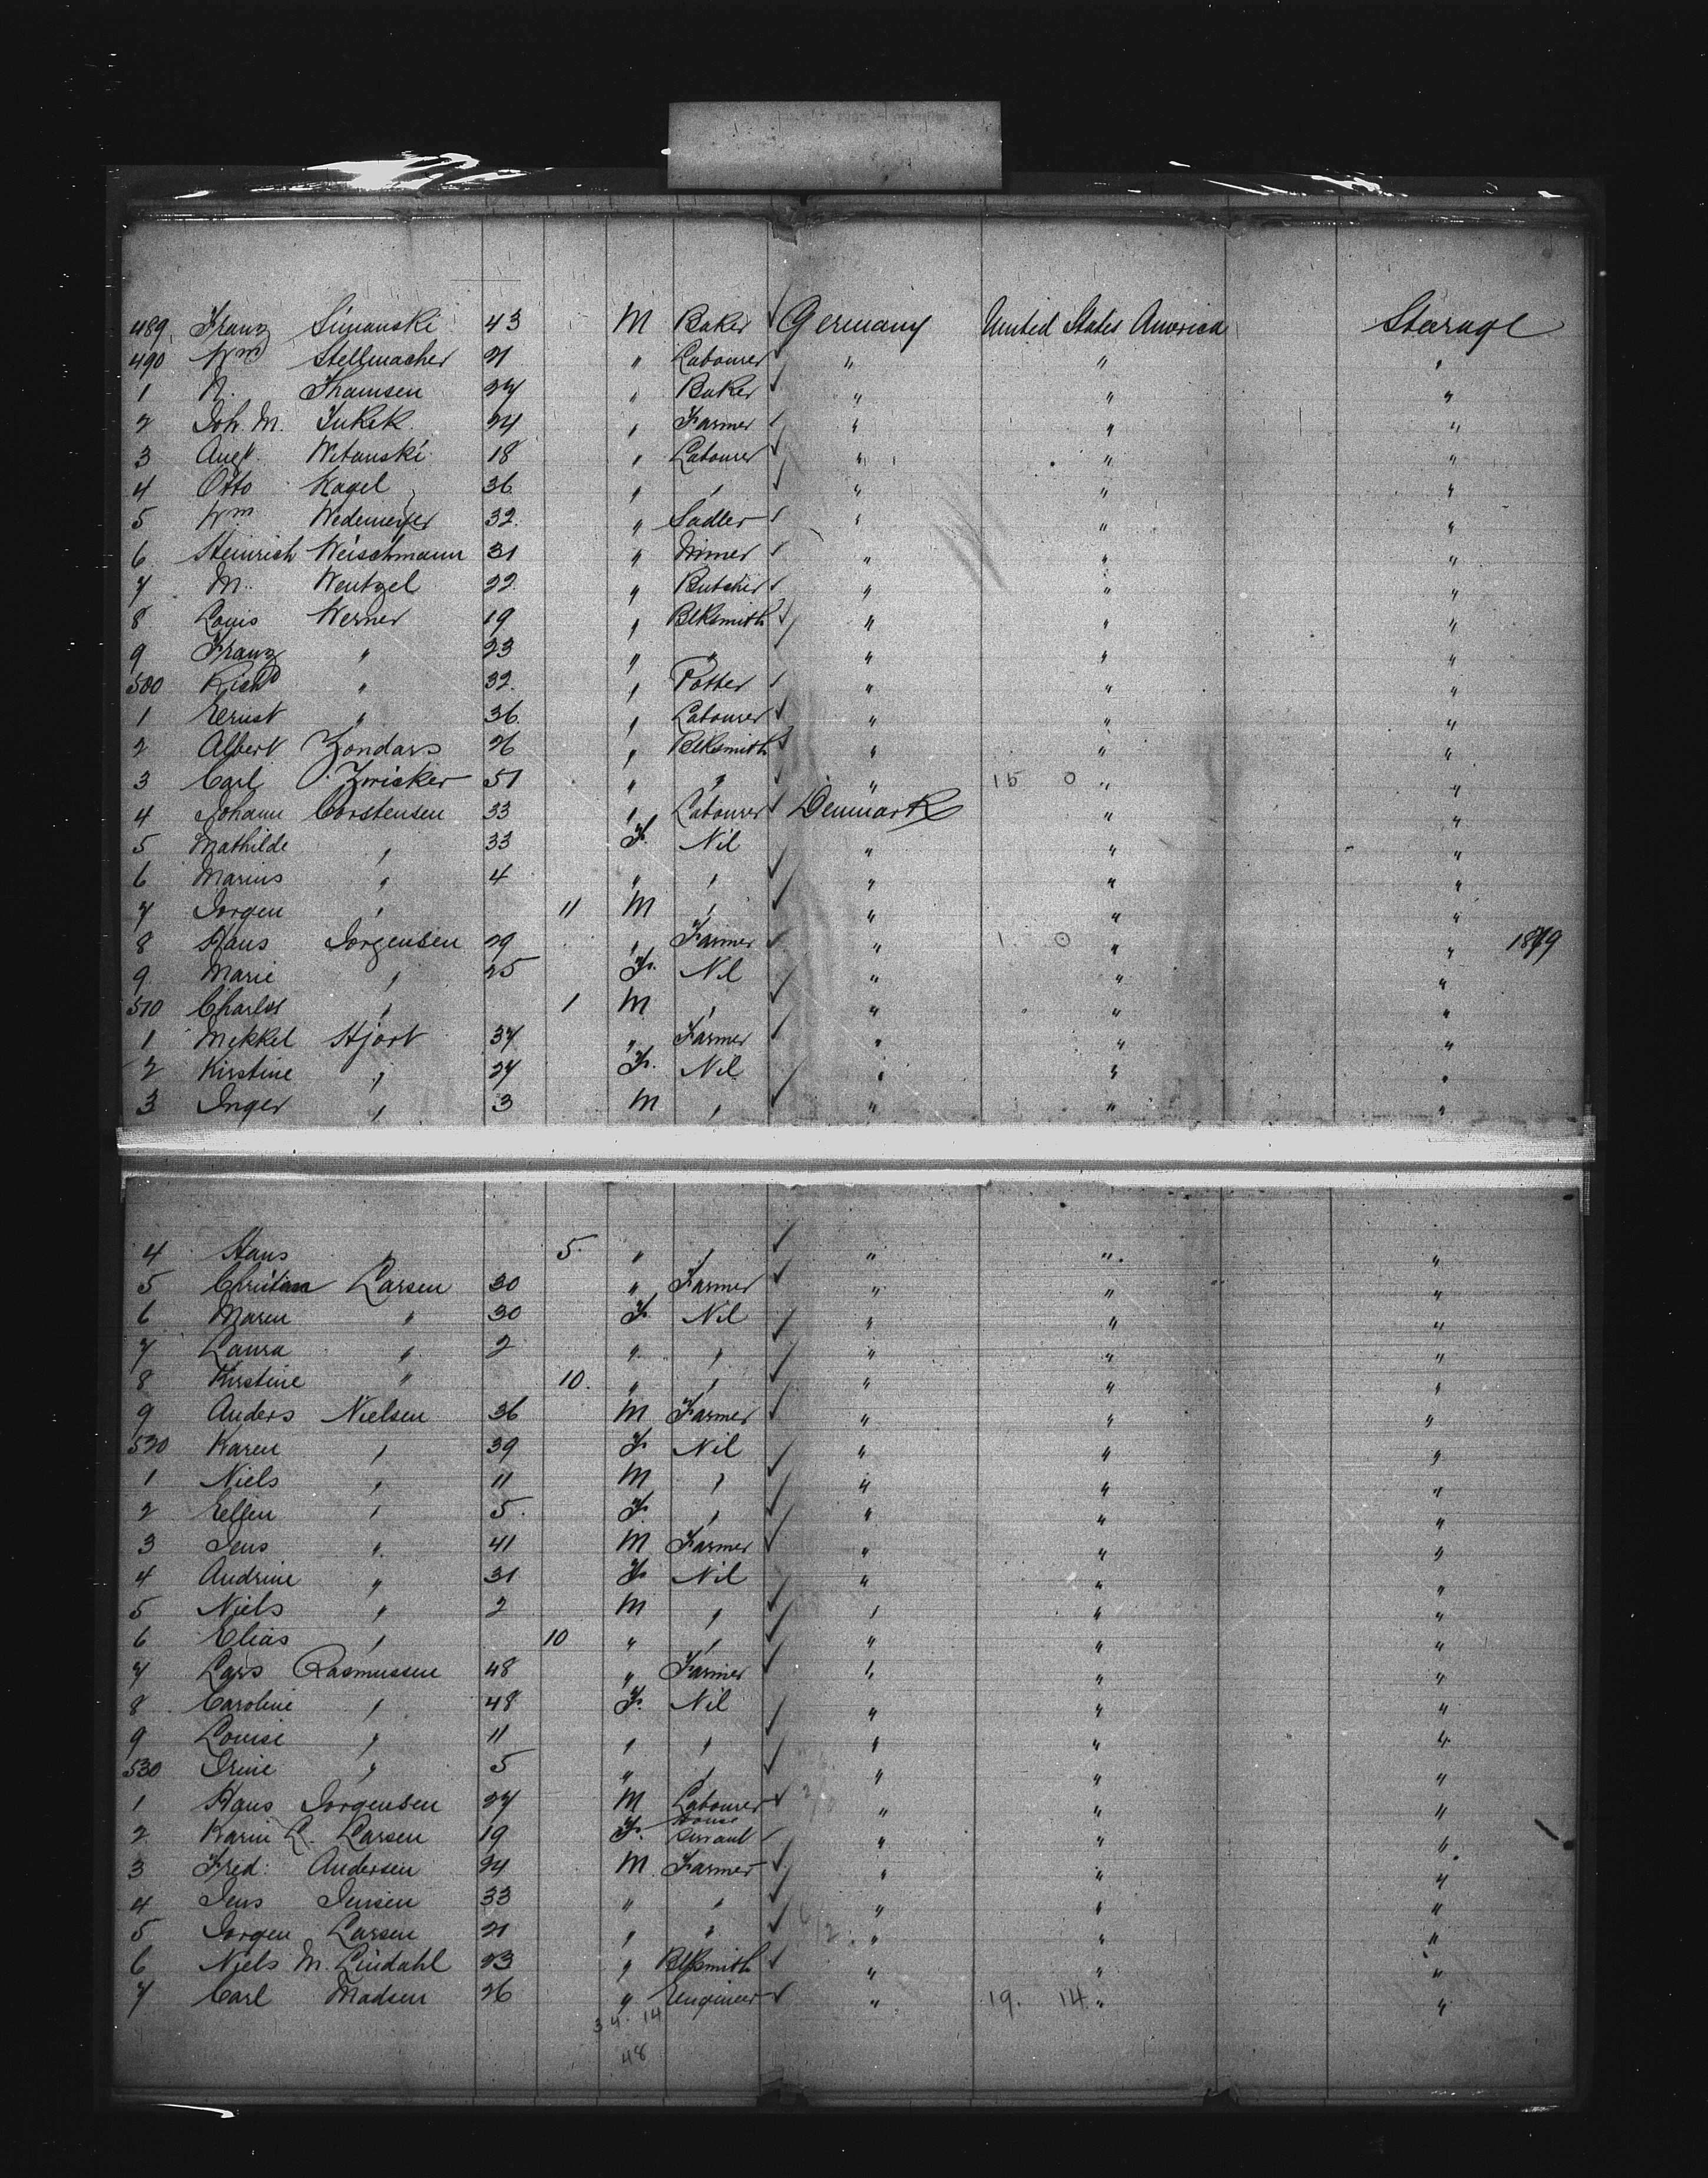 489 Franz Simanski 43 M Baker ✓ Germany United States America Steerage
490 Wm Stellmacher 21 " Labourer ✓ " " "
1 N. Thamsen 27 " Baker ✓ " " "
2 Joh. M. 24 " Farmer ✓ " " "
3 Augt. Witanski 18 " Labourer ✓ " " "
4 Otto Kagel 36 " " ✓ " " "
5 Wm Wedemeyer 32 " Sadler ✓ " " "
6 Heinrich Weischmann 31 " ✓ " " "
7 M. Wentzel 22 " Butcher ✓ " " "
8 Louis Werner 19 " Blksmith ✓ " " "
9 Franz " 23 " " ✓ " " "
500 Richd " 32 " Potter ✓ " " "
1 Ernst " 36 " Labourer ✓ " " "
2 Albert Zondars 26 " Blksmith ✓ " " "
3 Carl Zwicker 51 " " ✓ " 15 0 " "
4 Johann Corstensen 33 " Labourer ✓ Denmark " "
5 Mathilde " 33 F. Nil " " "
6 Marius " 4 " " ✓ " " "
7 Jorgen " 11 M " ✓ " " "
8 Hans Jorgensen 29 " Farmer ✓ " 1 0 " " 1879
9 Marie " 25 F. Nil ✓ " " "
510 Charles " 1 M " ✓ " " "
1 Mekkel Hjort 37 " Farmer ✓ " " "
2 Kirstine " 27 F. Nil ✓ " " "
3 Inger " 3 M " ✓ " " "
4 Hans " 5 " " ✓ " " "
5 Christian Larsen 30 " Farmer ✓ " " "
6 Maren " 30 F. Nil ✓ " " "
7 Laura " 2 " " ✓ " " "
8 Kirstine " 10 " " ✓ " " "
9 Anders Nielsen 36 M Farmer ✓ " " "
520 Karen " 39 F. Nil ✓ " " "
1 Niels " 11 M " ✓ " " "
2 Ellen " 5 F. " ✓ " " "
3 Jens " 41 M Farmer ✓ " " "
4 Andrine " 31 F. Nil ✓ " " "
5 Niels " 2 M " ✓ " " "
6 Elias " 10 " " ✓ " " "
7 Lars Rasmussen 48 " Farmer ✓ " " "
8 Caroline " 48 F. Nil ✓ " " "
9 Louise " 11 " " ✓ " " "
530 Irine " 5 " " ✓ " " "
1 Hans Jorgensen 27 M Labourer ✓ " " "
2 Karin L. Larsen 19 F. House Servant ✓ " " "
3 Fred: Andersen 24 M. Farmer ✓ " " "
4 Jens Jensen 33 " " ✓ " " "
5 Jorgen Larsen 21 " " ✓ " " "
6 Niels M. Lindahl 23 " Blksmith ✓ " " "
7 Carl Madsen 26 " Engineer ✓ " 19. 14 " "
34. 14
48